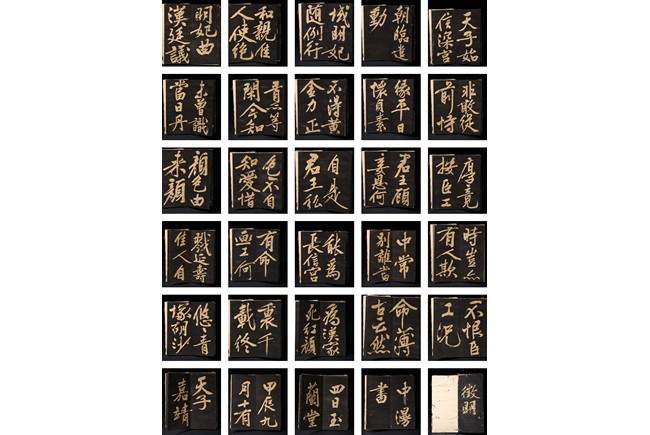 明妃曲
漢廷議
和親佳
人使絕
域明妃
隨例行
朝臨遣
動
天子始
信深宮
未曾識
當日丹
青
閑今知
不得黃
金力正
緣平日
懷貞素
非敢從
前恃
顏色由
來顏
色不自
知愛惜
自是
君王私
君王顧
妾恩何
厚竟
按臣工
戮延壽
佳人自
有命
畫工何
能為
長信宮
中常
別離當
時豈無
有人欺
悠悠青
塚胡沙
裏千
載終
為漢家
死紅顏
命薄
古云然
不恨臣
工況
天子
嘉靖
甲辰九
月十有
四日玉
蘭堂
中漫
書
徵明